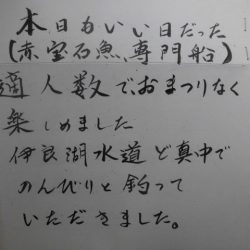 本日もいい日だった
(赤宝石魚専門船)
適人数で、おまつりなく
楽しめました
伊良湖水道ど真中で
のんびりと釣って
いただきました。